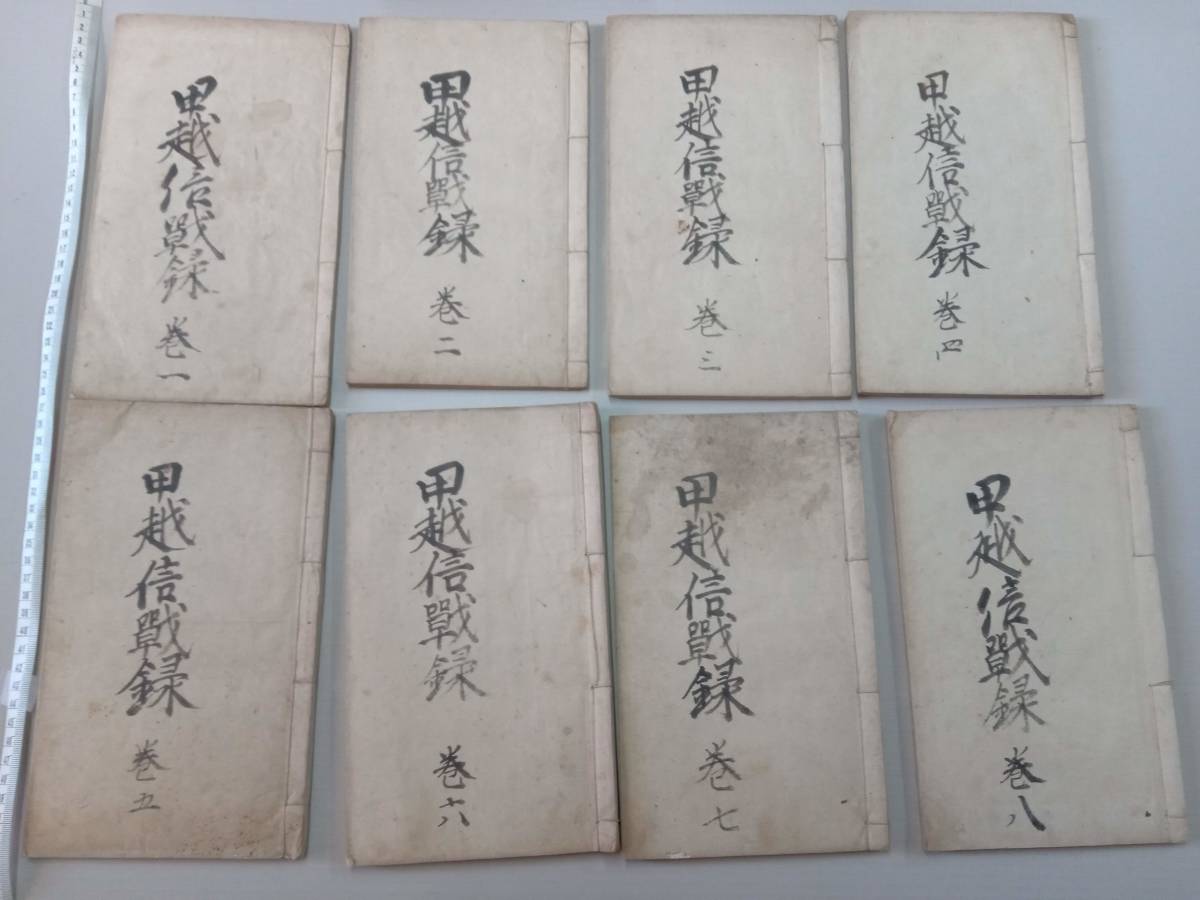 甲越信戦録
巻一
甲越信戰録
巻二
甲越信戰録
巻三
甲越信戰録
巻四
甲越信戰録
巻五
甲越信戰録
巻六
甲越信戰録
巻七
甲越信戰録
巻八